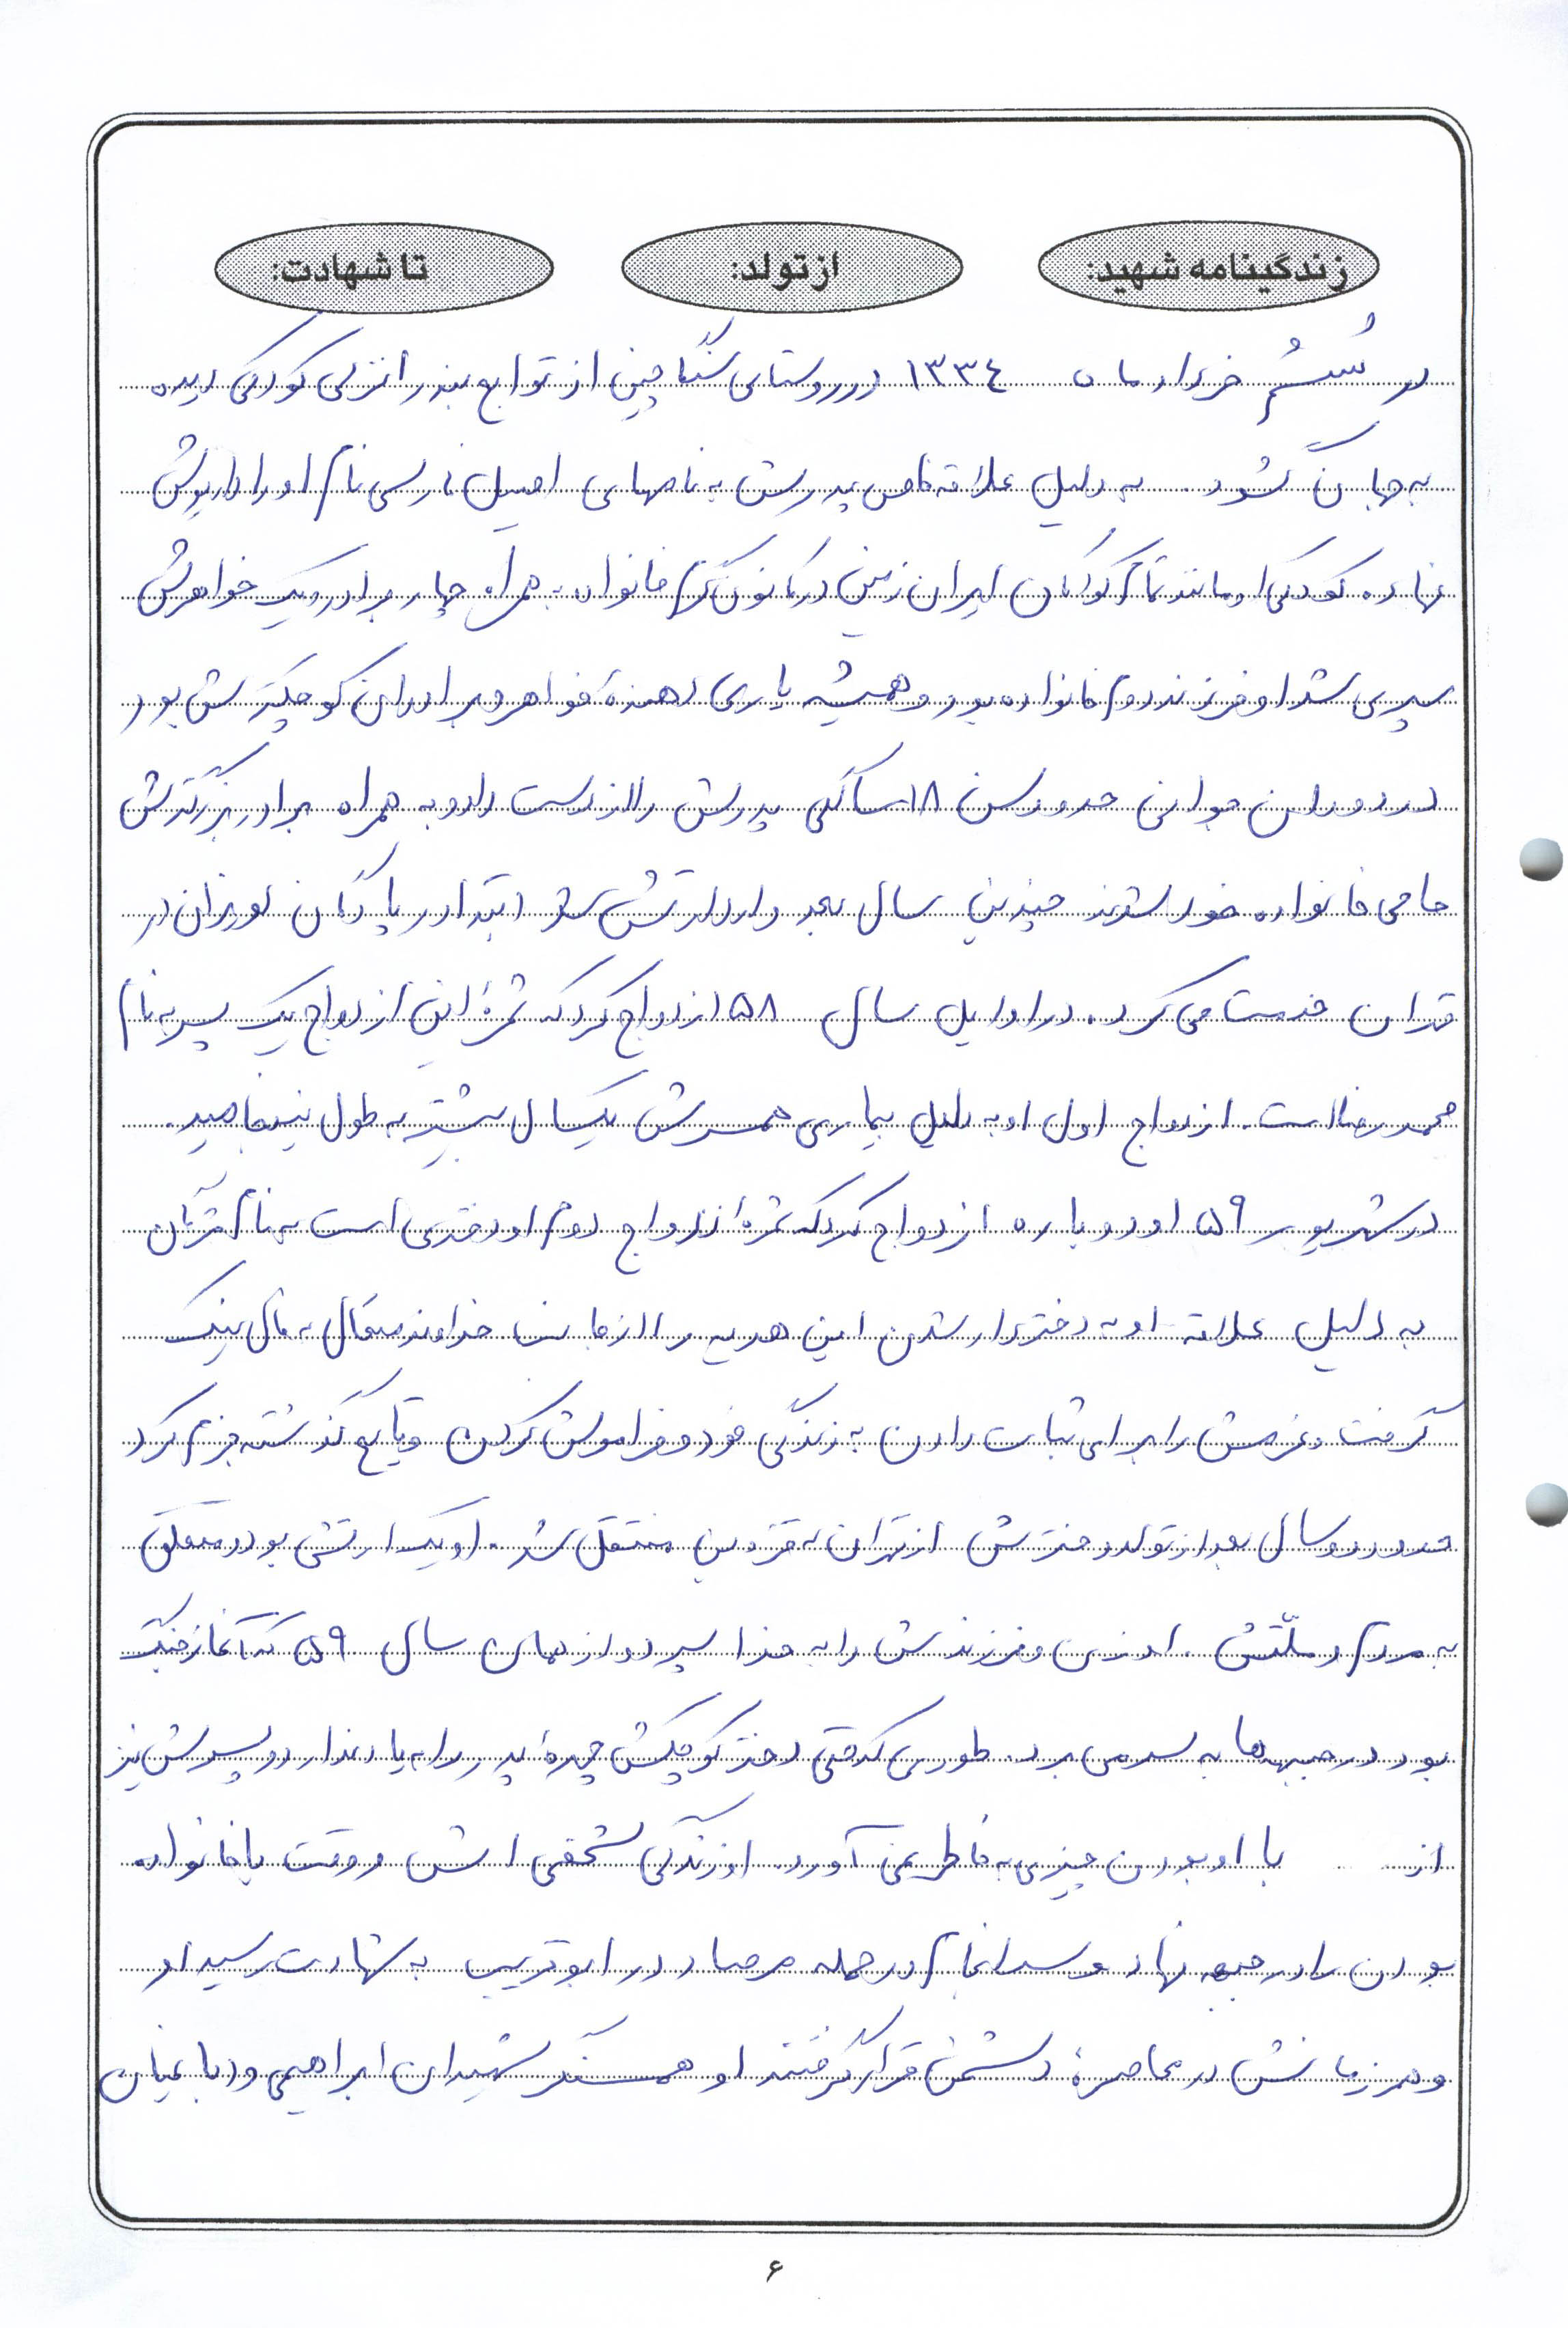 زندگینامه شهید: از تولد: تا شهادت:
در شُشُم خرداد ماه ۱۳۳۴ در روستای سنگاچین از توابع بندر انزلی کودکی دیده
به جهان گشود. به دلیل علاقه خاص پدرش به نامهای اصیل فارسی نام او را داریوش
نهاده کودکی او مانند تمام کودکان ایران زمین در کانون گرم خانواده به همراه چهار برادر و یک خواهرش
سپری شد او فرزند دوم خانواده بود و همیشه یاری دهندهٔ خواهر و برادران کوچکترش بود
در دوران جوانی حدود سن ۱۸ سالگی پدرش را از دست داد و به همراه برادر بزرگترش
حامی خانواده خود شدند چندین سال بعد وارد ارتش شد ابتدا در پادگان لویزان در
تهران خدمت می کرد. در اوایل سال ۵۸ ازدواج کرد که ثمرهٔ این ازدواج یک پسر به نام
محمدرضا است. ازدواج اول او به دلیل بیماری همسرش یکسال بیشتر به طول نینجامید.
در شهریور ۵۹ او دوباره ازدواج کرد که ثمرهٔ ازدواج دوم او دختری است به نام
به دلیل علاقه او به دختردار شدن این هدیه را از جانب خداوند متعال به فال نیک
گرفت و عزمش را برای ثبات دادن به زندگی خود و فراموش کردن وقایع گذشته جزم کرد
حدود دو سال بعد از تولد دخترش از تهران به قزوین منتقل شد. او یک ارتشی بود و متعلق
به مردم و ملّتش. او زن و فرزندش را به خدا سپرد و از همان سال ۵۹ که آغاز جنگ
بود در جبهه ها به سر می برد. طوری که حتی دختر کوچکش چهرهٔ پدر را به یاد ندارد و پسرش نیز
از با او بودن چیزی به خاطر نمی آورد. او زندگی شخصی اش و وقت با خانواده
بودن را در جبهه نهاد و سرانجام در حمله مرصاد در ابوقریب به شهادت رسید او
و همرزمانش در محاصرهٔ دشمن قرار گرفتند او همسنگر شهیدان ابراهیمی و
۶